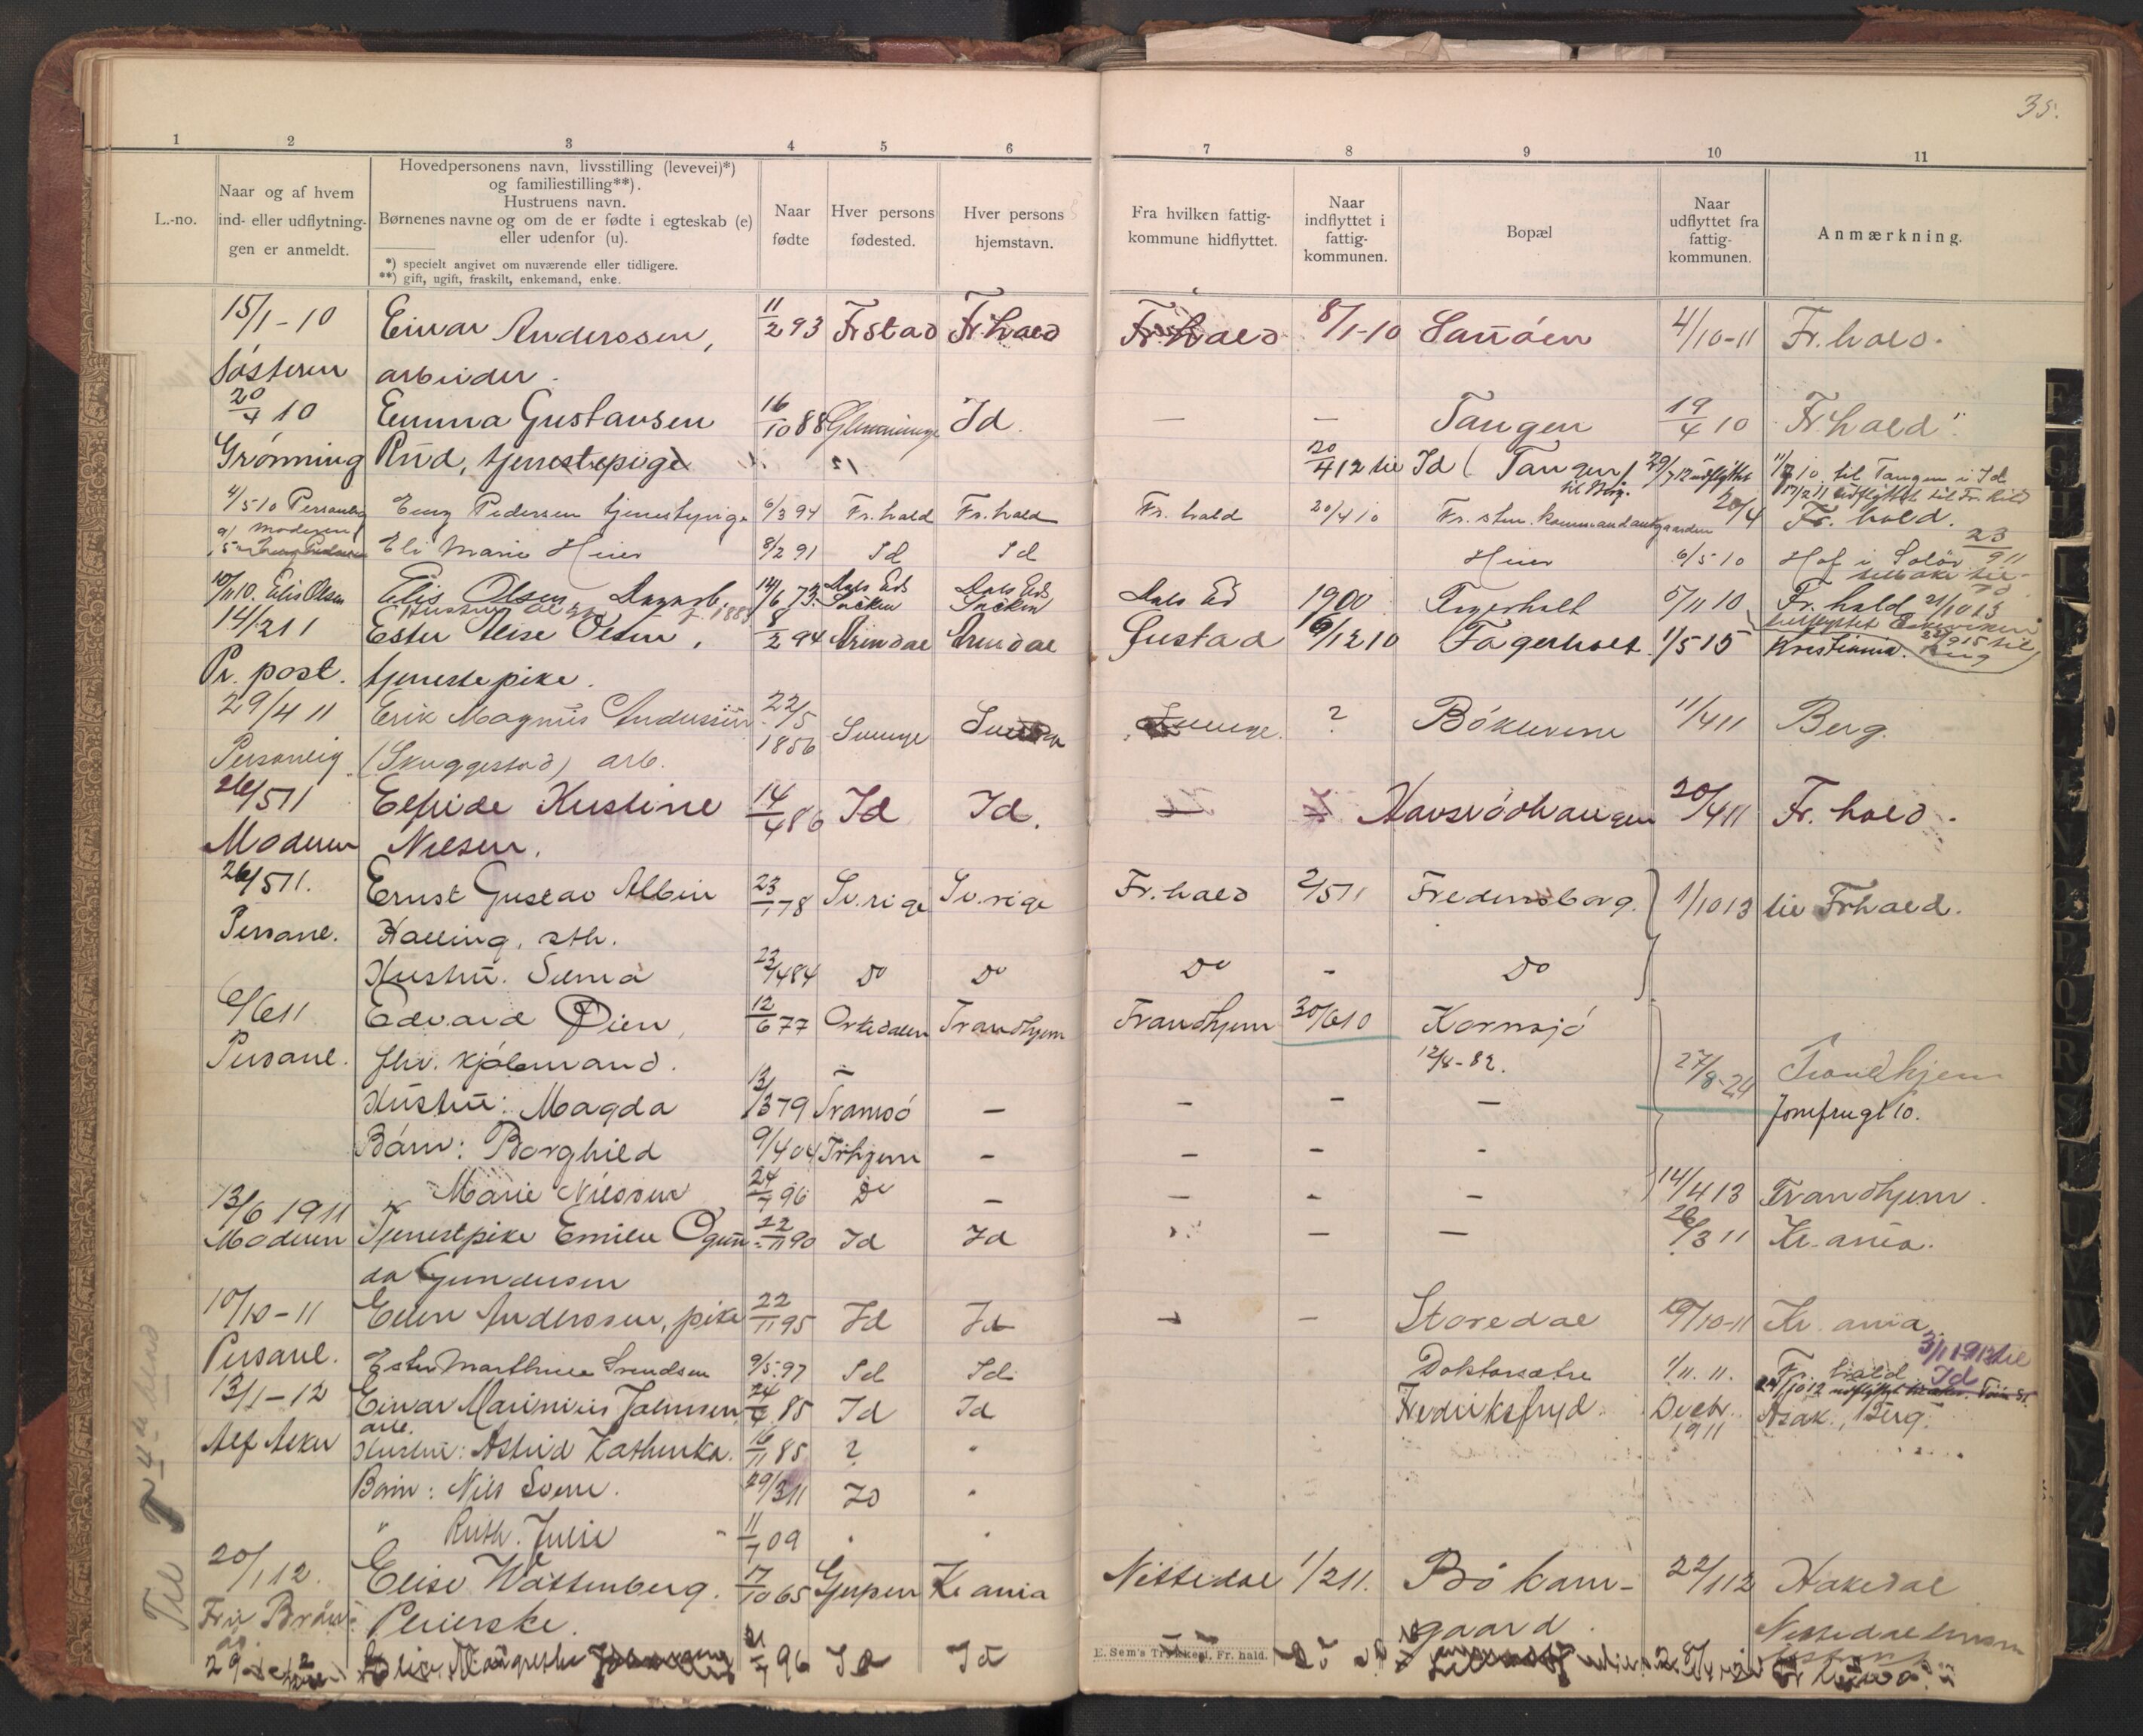 35.
1 2 3 4 5 6 7 8 9 10 11
L.-no.
Naar og af hvem
ind- eller udflytnin-
gen er anmeldt.
Hovedpersonens navn, livsstilling (levevei)*)
og familiestilling**).
Hustruens navn.
Børnenes navne og om de er fødte i egteskab (e)
eller udenfor (u).
*) specielt angivet om nuværende eller tidligere.
**) gift, ugift, fraskilt, enkemand, enke.
Naar
fødte
Hver persons
fødested.
Hver persons
hjemstavn.
Fra hvilken fattig-
kommune hidflyttet.
Naar
indflyttet i
fattig-
kommunen.
Bopæl
Naar
udflyttet fra
fattig-
kommunen.
Anmærkning.
15/1-10 Einar Anderssen, 11/2 93 Frstad Fr.hald Fr.hald 8/1-10 Sanöen 4/10-11 Fr.hald.
Søsteren arbeider.
20/4 10 Emma Gustavsen 16/10 88 Glemminge Id. — — Tangen 19/4 10 Fr.hald
Grønning Rud, tjenestepige 20/4 12 til Id (Tangen) 29/7 12 udflyttet 11/2 10 til Tangen i Id
til Berg. 17/2 11 udflyttet til Fr.hald
4/5 10 Personlig Eny Pedersen tjenestepige 6/3 94 Fr.hald Fr.hald Fr.hald 20/4 10 Fr.sten Kommandantgaarden 20/4 Fr.hald.
moderen Eli Marie Heier 8/2 91 Id Id Heier 6/5 10 Hof i Solör 23/9 11
tilbake til Id
10/11 10. Elis Olsen Elis Olsen Dagarb. 14/6 73. Dals Ed Dals Ed Dals Ed 1900 Fagerholt 5/11 10 Fr.hald 21/10 13
14/2 11 Ester Elise Olsen, 8/2 94 Arendal Arendal Gustad 6/12 10 Fagerholt 1/5 15 Kristiania.
Pr. post. tjenestepike.
29/4 11 Erik Magnus Andersson 22/5 1856 Sverige Sverige Sverige. ? Bökevene 11/4 11 Berg.
Personlig (Skuggestad) arb.
26/5 11 Elfride Kristine 14/4 86 Id Id. — Kavsrödhaugen 20/4 11 Fr.hald.
Moderen Nilsen.
26/5 11. Ernst Gustav Albin 23/1 78 Sv.rige Sv.rige Fr.hald 2/5 11 Fredensborg. 1/10 13 til Frhald.
Personl. Halling, sth.
Hustru. Selma 23/4 84 Do Do Do - Do
6/6 11 Edvard Øien, 12/6 77 Orkedalen Trondhjem Trondhjem 30/6 10 Kornsjö
Personl. fhv. kjøbmand. 12/4-82. 27/8-24 Trondhjem
Hustru: Magda 13/3 79 Tromsö — - - — Jomfrugt 10.
Børn: Borghild 9/4 04 Trhjem - - - -
Marie Nilssen 24/7 96 Do - - - - 14/4 13 Trondhjem.
13/6 1911
Moderen Tjenestpike Emilie Ogun- 22/11 90 Id Id — — 26/3 11 Kr.ania.
da Gundersen
10/10-11 Ellen Anderssen, pike 22/11 95 Id Id — - Storedal 9/10-11 Kr.ania
Personl. Ester Marthine Svendsen 9/5.97 Id Id. Doktorsætre 1/11.11. Fr.hald 3/11 1913 til Id
13/1-12 Einar Marinius Johnsen 24/4 85 Id Id Fredriksfryd. Decbr. 1911 Asak, Berg.
arb.
Alf Aker Hustru: Astrid Kathinka. 16/11 85 ? "
Børn: Nils Svein. 29/3 11 Id "
" Ruth. Julie 11/7 09 " "
20/1 12. Elise Wattenberg. 17/10 65 Gjerpen Kr ania Nittedal 1/2 11. Bökam- 22/1 12 Hakedal
Fru Brøn Pleierske. gaard. Nittedal
29 Elise Margrethe 21/7 96 Id Id
E. Sem's Trykkeri, Fr.hald.
Til